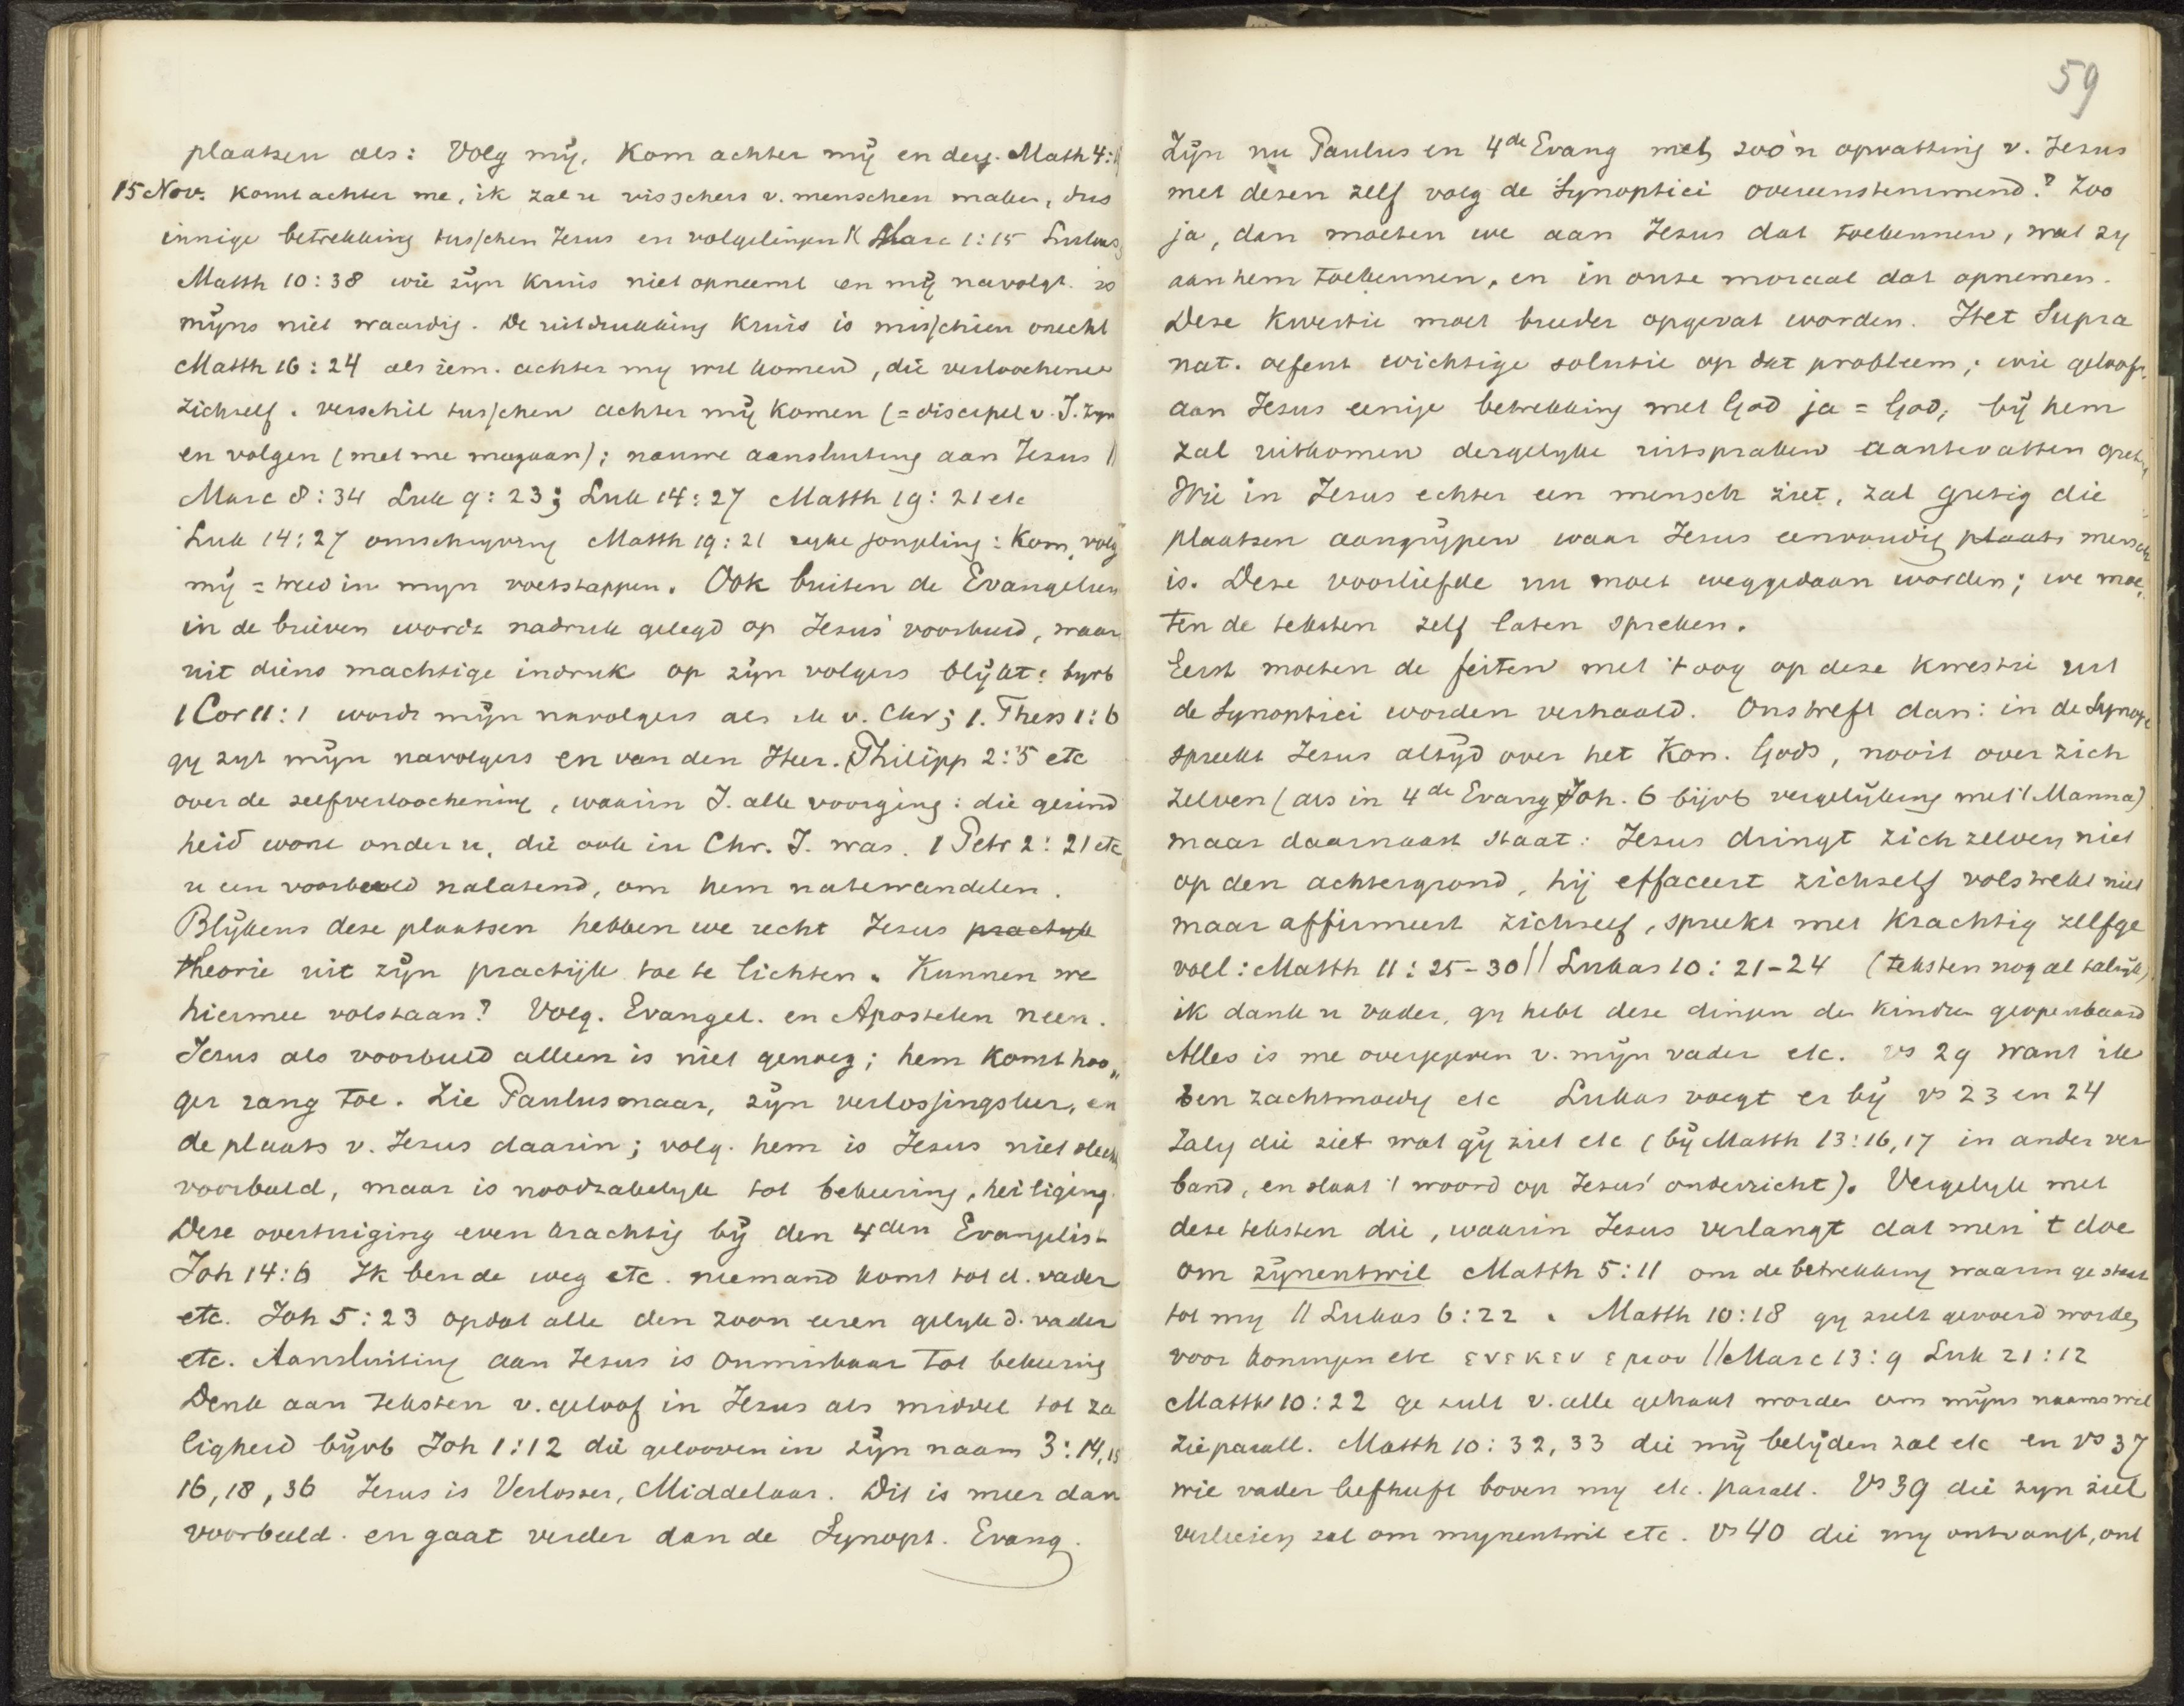 plaatsen als: Volg mÿ, Kom achter mÿ en derg. Math 4:
15 Nov. Komt achter me, ik zal u visschers v. menschen maken, dus
innige betrekking tusschen Jezus en volgelingen Marc 1:15
Matth 10:38 wie zÿn Kruis niet opneemt en mÿ navolgt. is
mÿns niet waardig. De uitdrukking Kruis is misschien onecht
Matth 16:24 als iem. achter my wil komen, die verloochene
zichzelf. verschil tusschen achter mÿ Komen (=discipel v. J. zyn
en volgen (met me meegaan); nauwe aansluiting aan Jezus //
Marc 8:34 Luk 9:23; Luk 14:27 Matth 19:21 etc
Luk 14:27 omschryving Matth 19:21 ryke jongeling: Kom, volg
mÿ = treed in myn voetstappen. Ook buiten de Evangelien
in de brieven wordt nadruk gelegd op Jezus' voorbeeld, waar
uit diens machtige indruk op zÿn volgers blÿkt: byvb
1 Cor 11:1 wordt mÿn navolgers als ik v. Chr; 1. Thess 1:6
gy zyt mÿn navolgers en van den Heer. Philipp 2:5 etc
over de zelfverloochening, waarin J. alle voorging: die gezind
heid wone onder u, die ook in Chr. J. was. 1 Petr 2:21 etc
u een voorbeeld nalatend, om hem natewandelen.
Blÿkens deze plaatsen hebben we recht Jezus practyk
theorie uit zÿn practijk toe te lichten. Kunnen we
hiermee volstaan? Volg. Evangel. en Apostelen neen.
Jezus als voorbeeld alleen is niet genoeg; hem Komt hoo„
ger rang toe. Zie Paulus maar, zÿn verlossingsleer, en
de plaats v. Jezus daarin; volg. hem is Jezus niet slechts
voorbeeld, maar is noodzakelyk tot bekeering, heiliging.
Deze overtuiging even krachtig bÿ den 4den Evangelist
Joh 14:6 Ik ben de weg etc. niemand komt tot d. vader
etc. Joh 5:23 opdat alle den zoon eeren gelyk d. vader
etc. Aansluiting aan Jezus is onmisbaar tot bekeering
Denk aan teksten v. geloof in Jezus als middel tot za
ligheid bÿvb Joh 1:12 die gelooven in zÿn naam 3:14,15
16, 18, 36 Jezus is Verlosser, Middelaar. Dit is meer dan
voorbeeld. en gaat verder dan de Synopt. Evang.
59
Zÿn nu Paulus en 4de Evang met zoo'n opvatting v. Jezus
met dezen zelf volg de Synoptici overeenstemmend? Zoo
ja, dan moeten we aan Jezus dat toekennen, wat zy
aan hem toekennen, en in onze moraal dat opnemen.
Deze Kwestie moet breeder opgevat worden. Het Supra
nat. oefent wichtige solutie op dat probleem; wie gelooft
aan Jezus eenige betrekking met God ja = God, bÿ hem
zal uitkomen dergelyke uitspraken aantevatten
Wie in Jezus echter een mensch ziet, zal gretig die
plaatsen aangrÿpen waar Jezus eenvoudig plaats mensch
is. Deze voorliefde nu moet weggedaan worden; we moe„
ten de teksten zelf laten spreken.
Eerst moeten de feiten met 't oog op deze Kwestie uit
de Synoptici worden verhaald. Ons treft dan: in de Synopt
spreekt Jezus altÿd over het Kon. Gods, nooit over zich
zelven (als in 4de Evang Joh. 6 bijvb vergelÿking met 't Manna)
maar daarnaast staat: Jezus dringt zich zelven niet
op den achtergrond, hij effaceert zichzelf volstrekt niet
maar affirmeert zichzelf, spreekt met Krachtig zelfge
voel: Matth 11:25-30 // Lukas 10:21-24 (teksten nog al talrÿk)
ik dank u vader, gy hebt deze dingen de Kindren geopenbaard
Alles is me overgegeven v. mÿn vader etc. vs 29 want ik
ben zachtmoedig etc Lukas voegt er bÿ vs 23 en 24
Zalig die ziet wat gÿ ziet etc (bÿ Matth 13:16,17 in ander ver
band, en slaat 't woord op Jezus' onderricht). Vergelyk met
deze teksten die, waarin Jezus verlangt dat men 't doe
om zÿnentwil Matth 5:11 om de betrekking waarin ge staat
tot my // Lukas 6:22. Matth 10:18 gy zult gevoerd worden
voor koningen etc ενεκεν εμου // Marc 13:9 Luk 21:12
Matth 10:22 ge zult v. alle gehaat worden om mÿns naams wil
zie parall. Matth 10:32, 33 die mÿ belÿden zal etc en vs 37
wie vader liefheeft boven my etc. parall. Vs 39 die zyn ziel
verliezen zal om mynentwil etc. vs 40 die my ontvangt, ont